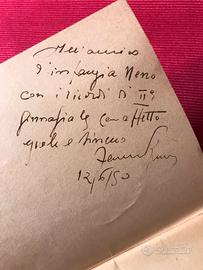 All'amico
d'infanzia Nemo
con i ricordi di IIª
ginnasiale con affetto
e sincero
12/6/50